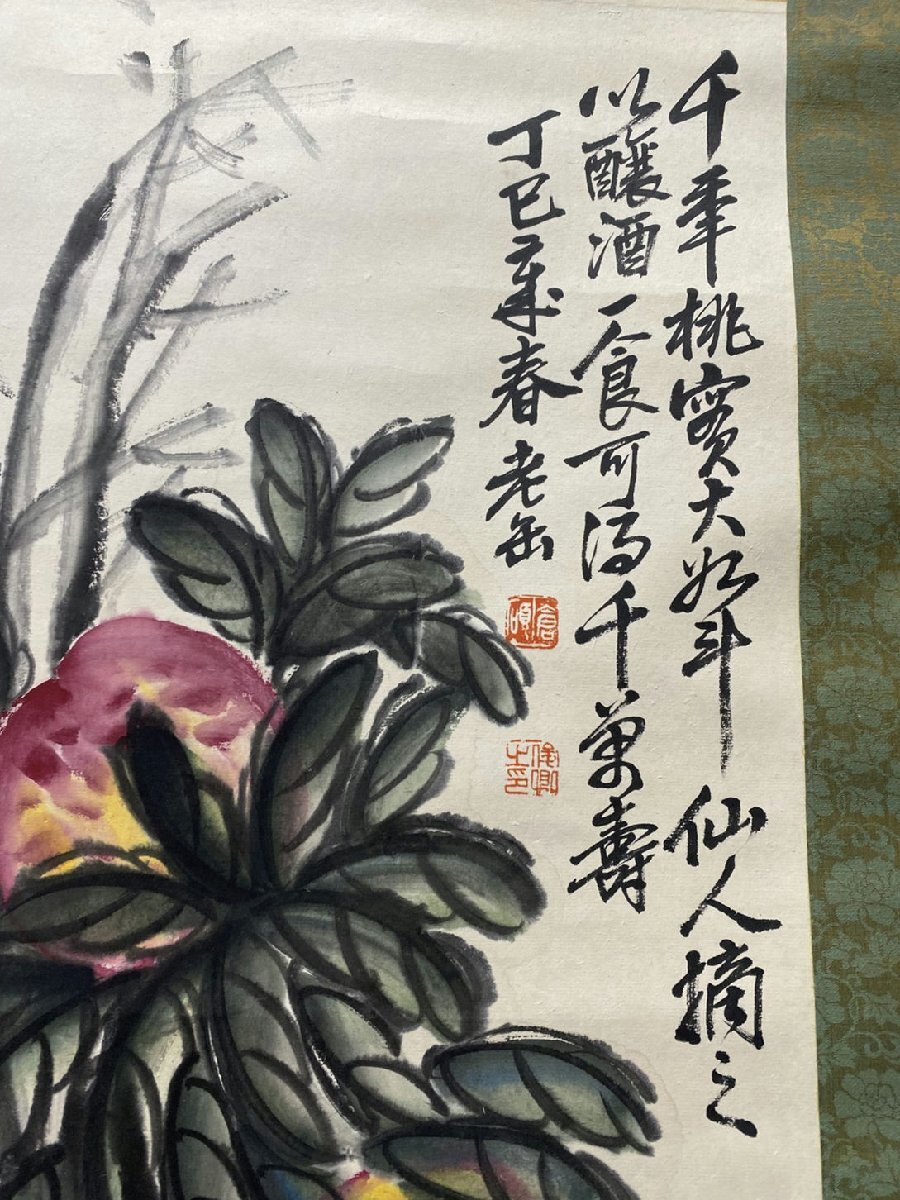 千年桃實大如斗仙人摘之
以釀酒一食可得千萬壽
丁巳歲春老缶
倉碩
俊卿之印